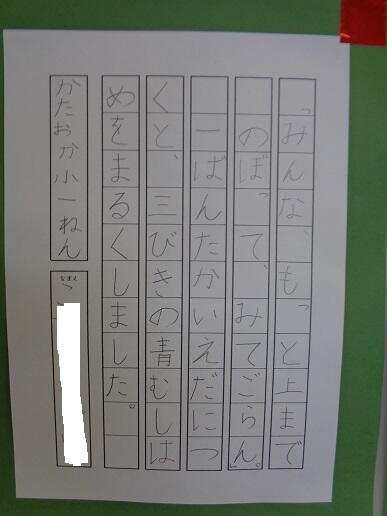 「みんな、もっと上まで
のぼって、みてごらん。」
一ばんたかいえだにつ
くと、三びきの青むしは
めをまるくしました。
かたおか小一ねん
なまえ